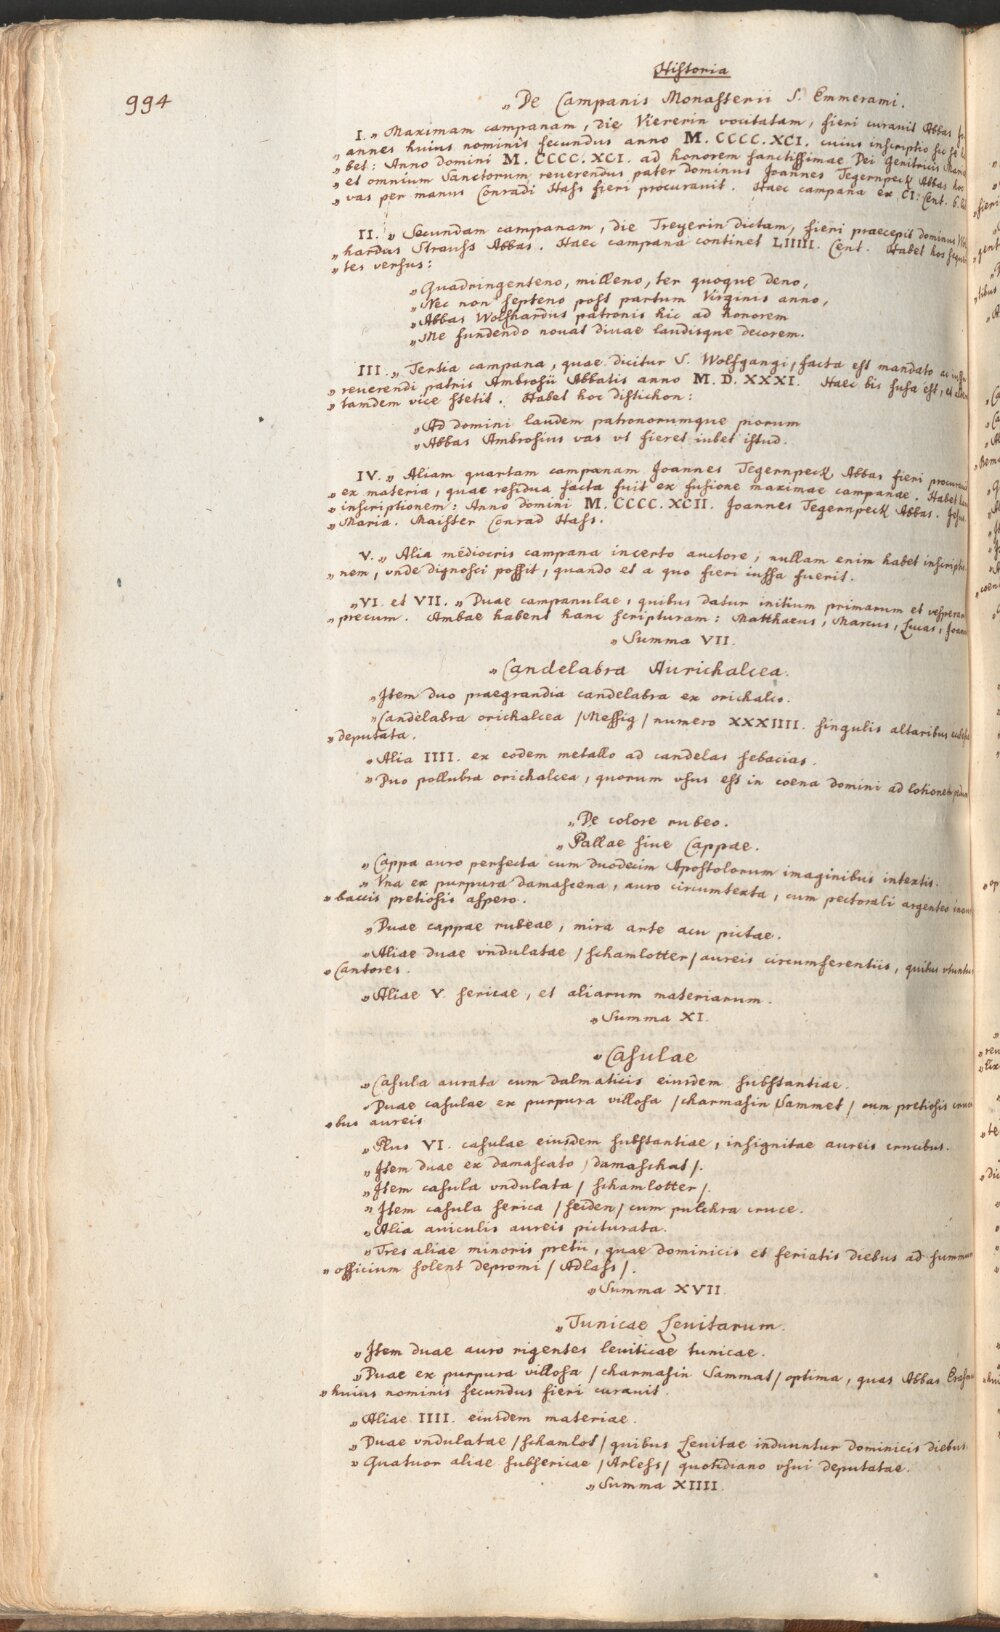 Historia
994
„De Campanis Monasterii S. Emmerami.
I. „Maximam campanam, die Viererin vocitatam, fieri curavit Abbas
„annes huius nominis secundus anno M. CCCC. XCI. cuius inscriptio sic se
„bet: Anno domini M. CCCC. XCI. ad honorem sanctissimae Dei genitricis
„et omnium Sanctorum reuerendus pater dominus Joannes Tegernpeck Abbas hoc
„vas per manus Conradi Hass fieri procurauit. Haec campana ex CI. Cent.
II. „Secundam campanam, die Treyerin dictam, fieri praecepit dominus
„hardus Strauss Abbas. Haec campana continet LIIII. Cent. Habet hos
„tes versus:
„Quadringenteno, milleno, ter quoque deno,
„Nec non septeno post partum Virginis anno,
„Abbas Wolfhardus patronis hic ad honorem
„Me fundendo nouat diuae laudisque decorem.
III. „Tertia campana, quae dicitur S. Wolfgangi, facta est mandato ac
„reuerendi patris Ambrosii Abbatis anno M. D. XXXI. Haec bis fusa est, et
„tamdem vice stetit. Habet hoc distichon:
„Ad domini laudem patronorumque piorum
„Abbas Ambrosius vas vt fieret iubet istud.
IV. „Aliam quartam campanam Joannes Tegernpeck Abbas fieri
„ex materia, quae residua facta fuit ex fusione maximae campanae. Habet
„inscriptionem: Anno domini M. CCCC. XCII. Joannes Tegernpeck Abbas.
„Maria. Maister Conrad Hass.
V. „Alia mediocris campana incerto auctore; nullam enim habet
„nem, vnde dignosci possit, quando et a quo fieri iussa fuerit.
„VI. et VII. „Duae campanulae, quibus datur initium primarum et
„precum. Ambae habent hanc scripturam: Matthaeus, Marcus, Lucas,
„Summa VII.
„Candelabra Aurichalcea.
„Item duo praegrandia candelabra ex orichalco.
„Candelabra orichalcea /Messig/ numero XXXIIII. singulis altaribus
„deputata.
„Alia IIII. ex eodem metallo ad candelas sebacias.
„Duo pollubra orichalcea, quorum vsus est in coena domini ad lotionem
„De colore rubeo.
„Pallae siue Cappae.
„Cappa auro perfecta cum duodecim Apostolorum imaginibus intextis.
„Vna ex purpura damascena, auro circumtexta, cum pectorali argenteo
„baccis pretiosis aspero.
„Duae cappae rubeae, mira arte acu pictae.
„Aliae duae vndulatae /schamlotter/ aureis circumferentiis, quibus vtuntur
„Cantores.
„Aliae V. sericae, et aliarum materiarum.
„Summa XI.
„Casulae
„Casula aurata cum dalmaticis eiusdem substantiae.
„Duae casulae ex purpura villosa /charmasin Sammet/ cum pretiosis
„bus aureis
„Plus VI. casulae eiusdem substantiae, insignitae aureis crucibus.
„Item duae ex damascato /damaschat/.
„Item casula vndulata /schamlotter/.
„Item casula serica /seiden/ cum pulchra cruce.
„Alia auiculis aureis picturata.
„Tres aliae minoris pretii, quae dominicis et feriatis diebus ad
„officium solent depromi /Adlass/.
„Summa XVII.
„Tunicae Leuitarum.
„Item duae auro rigentes leuiticae tunicae.
„Duae ex purpura villosa /charmasin Sammat/ optima, quas Abbas
„huius nominis secundus fieri curauit.
„Aliae IIII. eiusdem materiae.
„Duae vndulatae /schamlot/ quibus Leuitae induuntur dominicis diebus.
„Quatuor aliae subsericae /Arless/ quotidiano vsui deputatae.
„Summa XIIII.